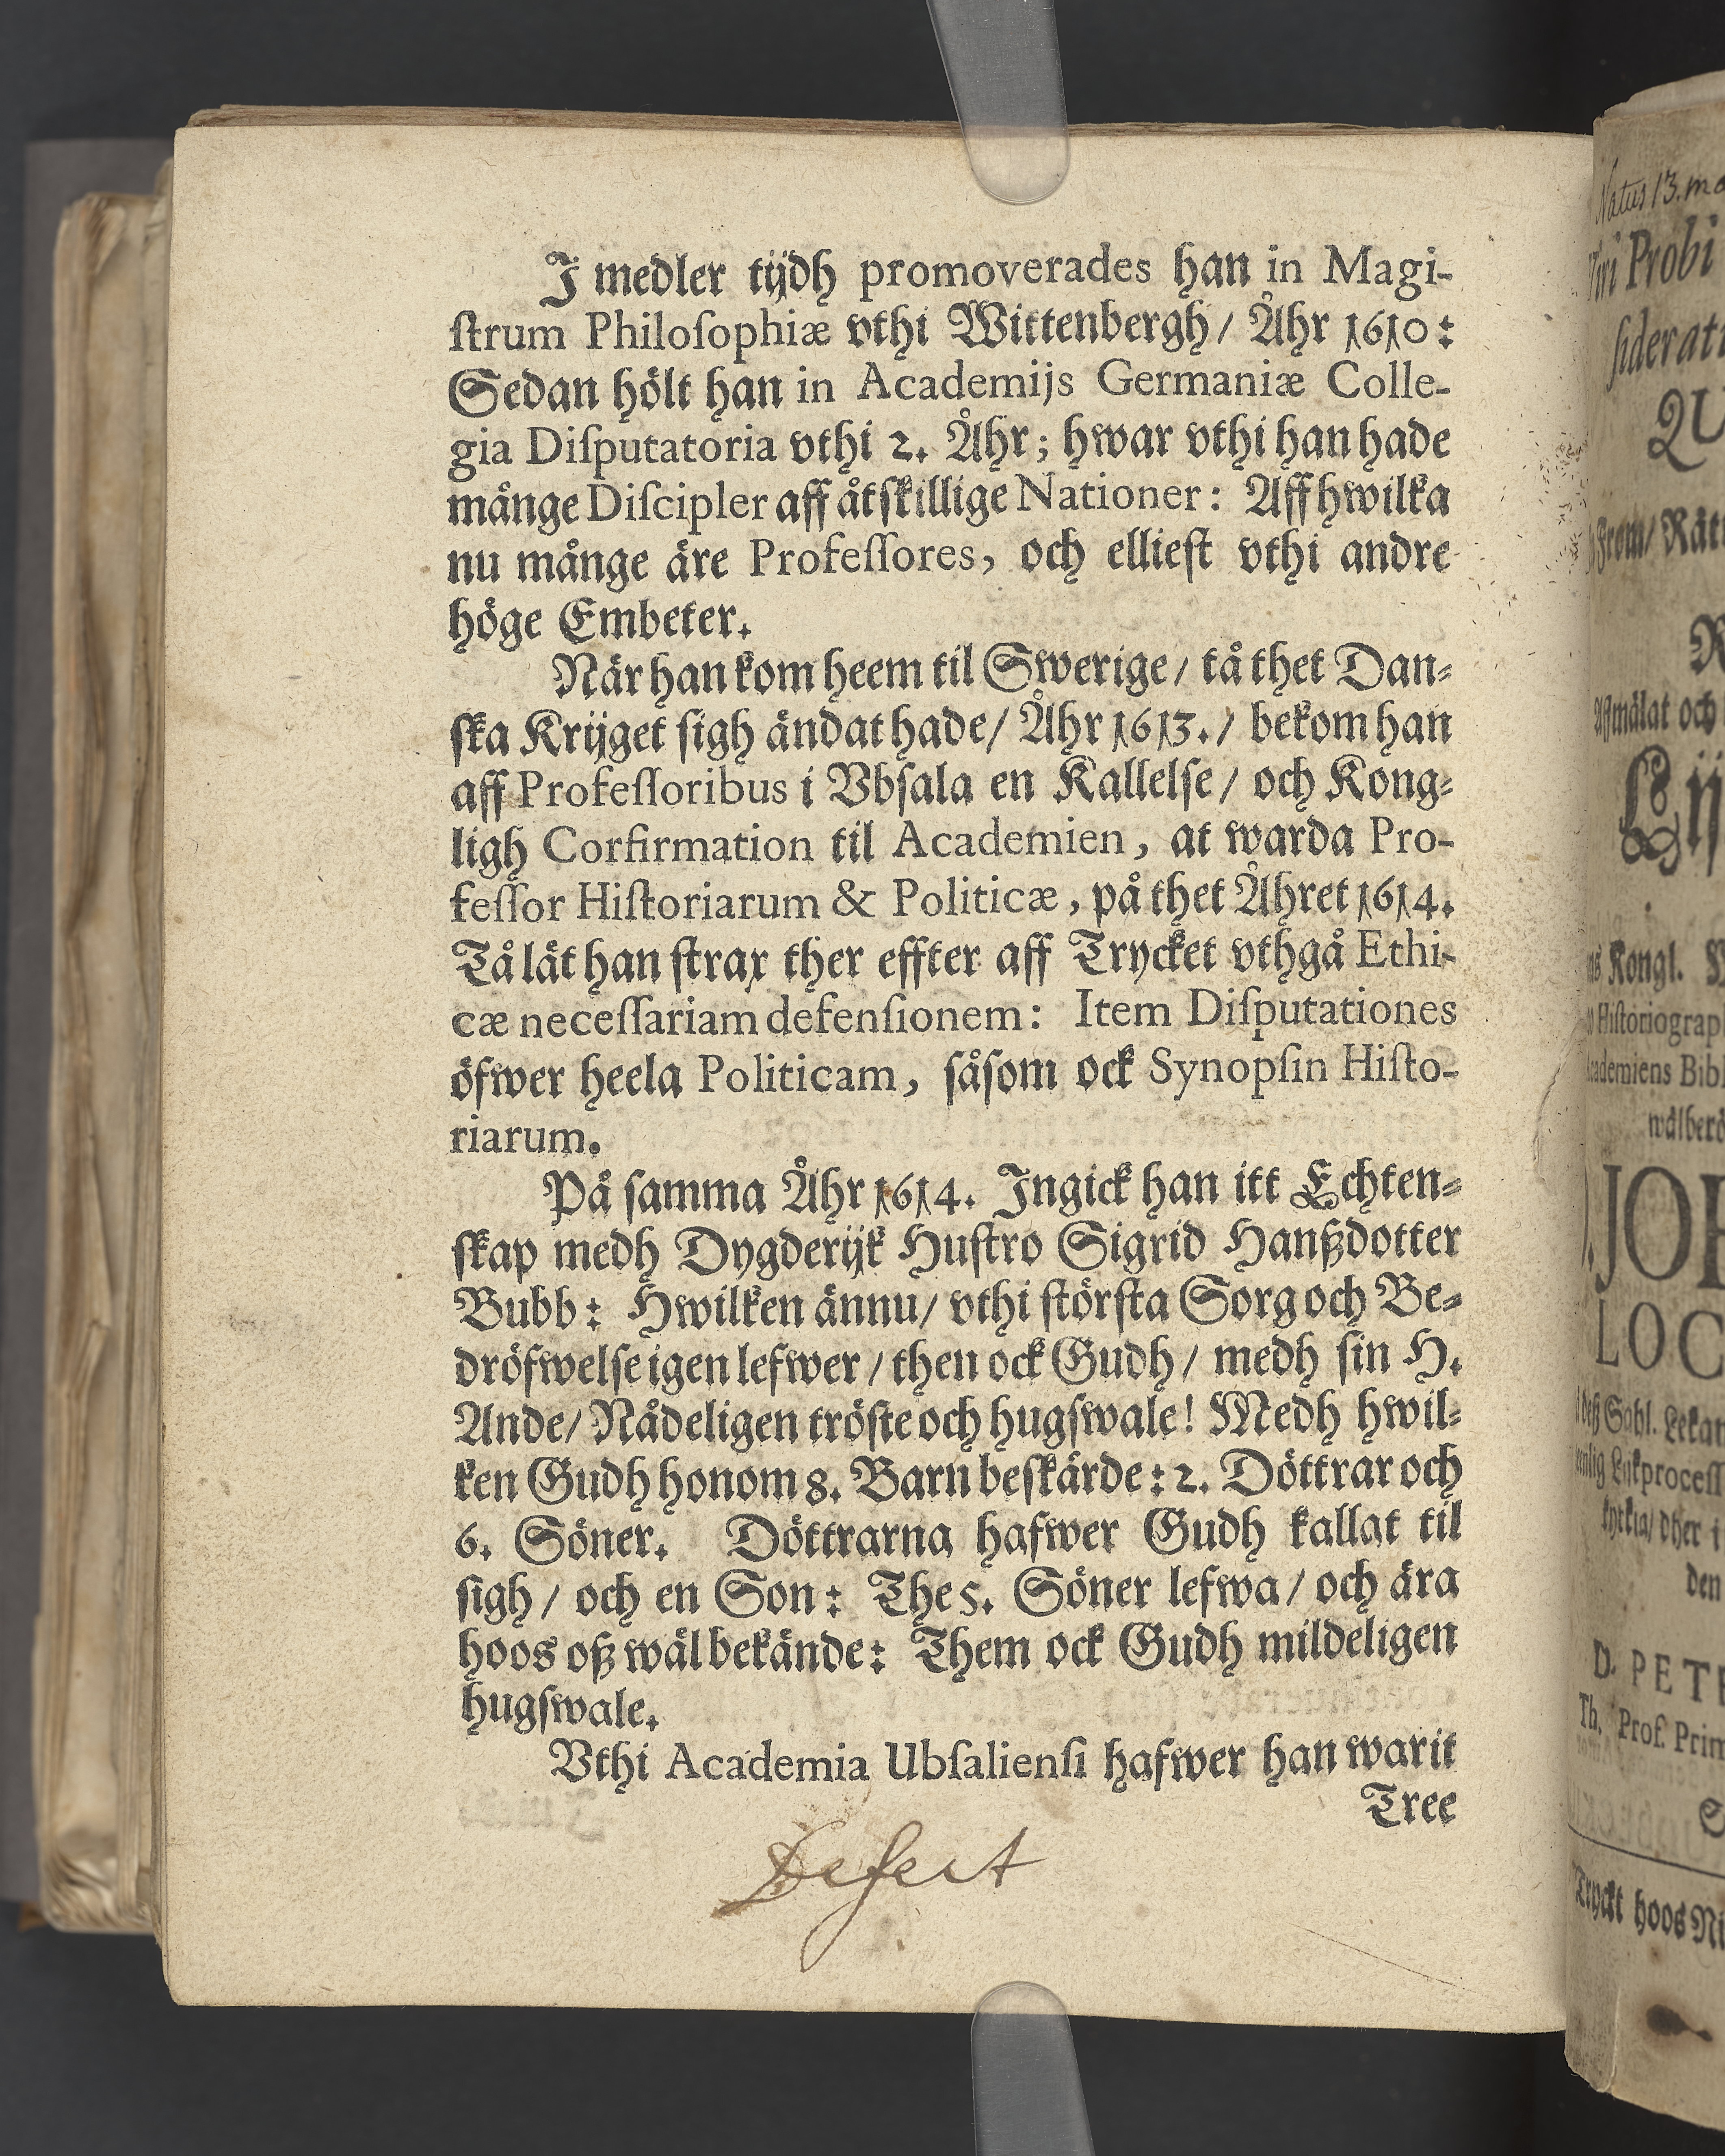 I medler tijdh promoverades han in Magi-
ſtrum Philoſophiæ vthi Wittenbergh/ Åhr 1610:
Sedan hölt han in Academijs Germaniæ Colle-
gia Diſputatoria vthi 2. Åhr; hwar vthi han hade
månge Diſcipler aff åtſkillige Nationer: Aff hwilka
nu månge äre Profeſſores, och ellieſt vthi andre
höge Embeter.
När han kom heem til Swerige/ tå thet Dan-
ſka Krijget ſigh ändat hade/ Åhr 1613./ bekom han
aff Profeſſoribus i Vbſala en Kallelſe/ och Kong-
ligh Corfirmation til Academien, at warda Pro-
feſſor Hiſtoriarum & Politicæ, på thet Åhret 1614.
Tå lät han ſtrax ther effter aff Trycket vthgå Ethi-
cæ neceſſariam defenſionem: Item Diſputationes
öfwer heela Politicam, ſåſom ock Synopſin Hiſto-
riarum.
På ſamma Åhr 1614. Ingick han itt Echten-
ſkap medh Dygderijk Huſtro Sigrid Hanßdotter
Bubb: Hwilken ännu/ vthi ſtörſta Sorg och Be-
dröfwelſe igen lefwer/ then ock Gudh/ medh ſin H.
Ande/ Nådeligen tröſte och hugſwale! Medh hwil-
ken Gudh honom 8. Barn beſkärde: 2. Döttrar och
6. Söner. Döttrarna hafwer Gudh kallat til
ſigh/ och en Son: The 5. Söner lefwa/ och ära
hoos oß wäl bekände: Them ock Gudh mildeligen
hugſwale.
Vthi Academia Ubſalienſi hafwer han warit
Tree
Defect
Natus 13.
Viri Probi
ſiderati
QU
From/ Rätt
R
och
Lij
Kongl.
Hiſtoriograp
ademiens Bibl
wälberö
JOH
LOC
Sahl. Lekam
Lijkproceſſ
kyrkia/ dher i
den
D. PETR
Th. Prof. Prim
S
Tryckt hoos